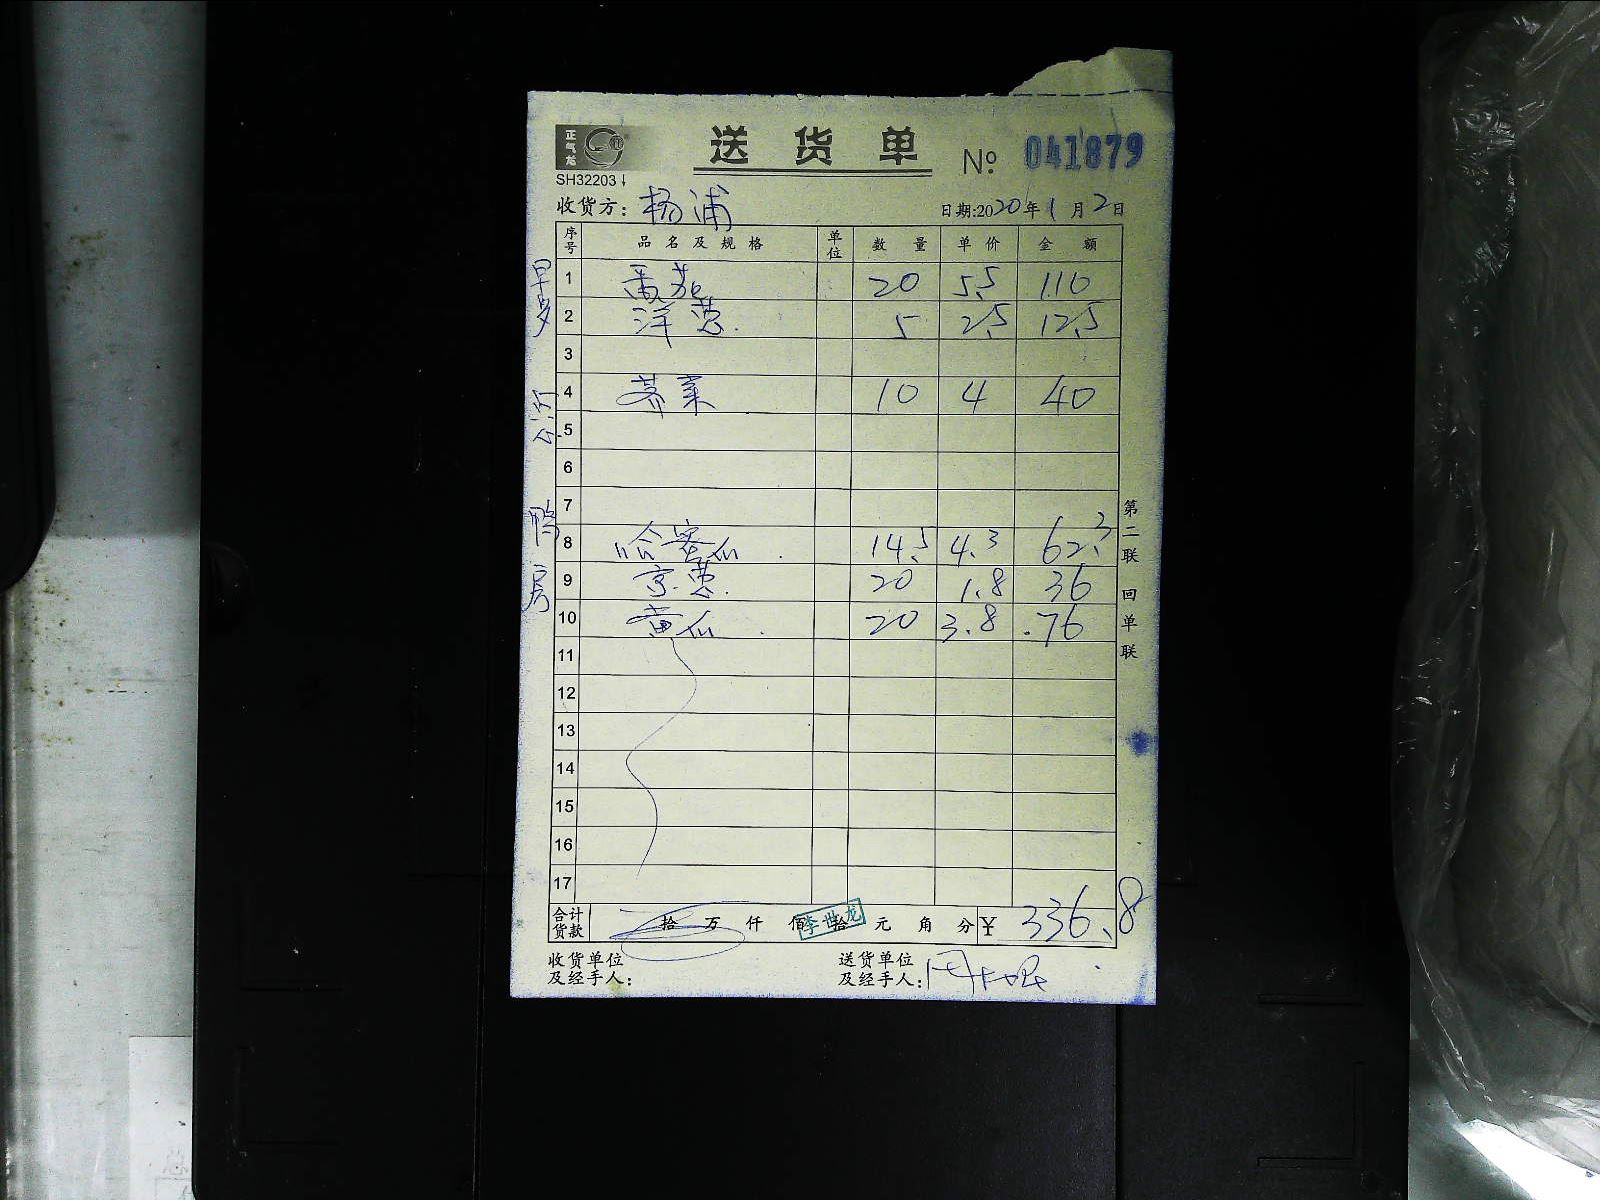 正气龙
送货单 № 041879
SH32203
收货方: 杨浦 日期:2020年1月2日
序号 品名及规格 单位 数量 单价 金额
早
1 番茄 20 5.5 110
2 洋葱. 5 2.5 12.5
3
4 荠菜 10 4 40
5
6
7
鸭房
8 哈密瓜 14.5 4.3 62.3
9 京葱. 20 1.8 36
10 黄瓜 20 3.8 76
11
12
13
14
15
16
17
合计货款 拾 万 仟 佰 拾 元 角 分 ¥ 336.8
李世龙
收货单位及经手人:
送货单位及经手人:
第二联 回单联